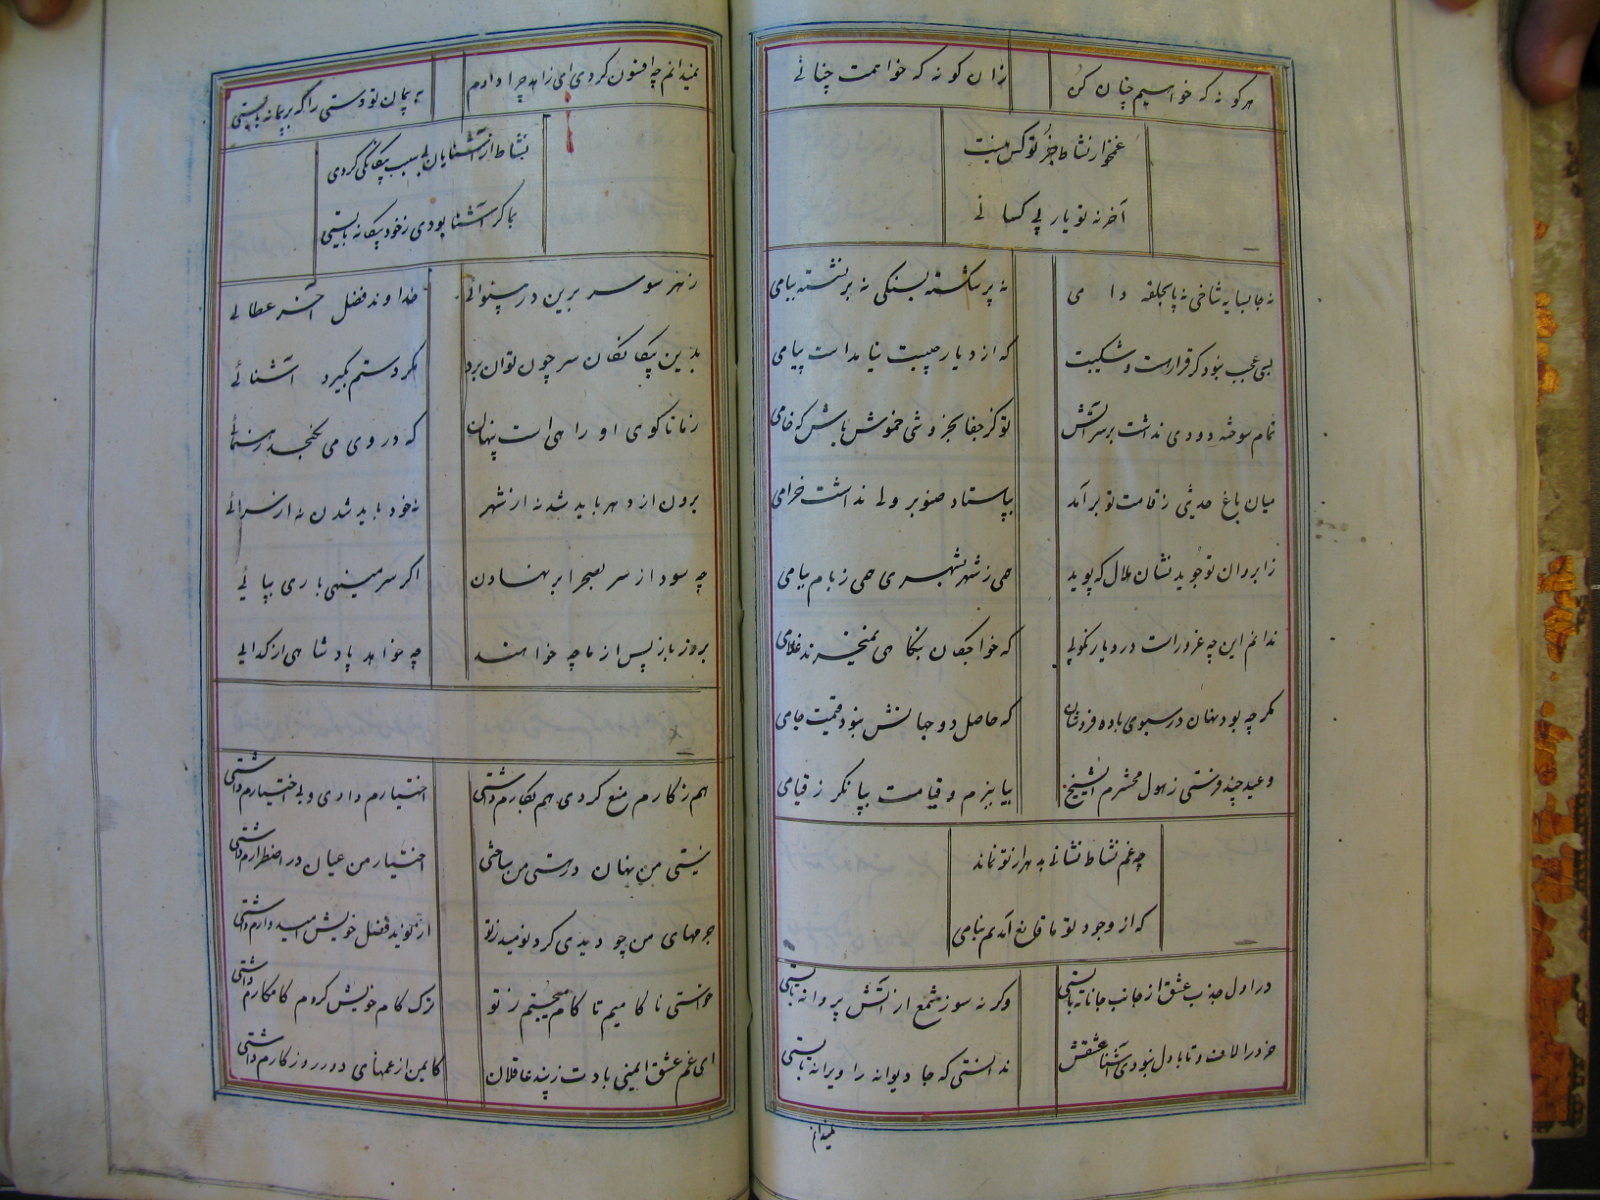 هرگونه که خواهیم چنان کن
زان گونه که خواهمت چنانی
غمخوار نشاط جز تو کس نیست
آخر نه تو یار بی کسانی
نه جا بسایه شاخی نه پا بحلقه دامی
نه پر شکسته بسنگی نه برنشته ببامی
بسی عجب نبود گر قرار است و شکیبت
که از دیار حبیبت نیامداست پیامی
تمام سوخته دودی نداشت بر سر آتش
تو کز جفا بخروشی خموش باش که خامی
میان باغ حدیثی ز قامت تو برآمد
بپاستاد صنوبر ولی نداشت خرامی
ز ابروان تو جوید نشان هلال که پوید
همی ز شهر بشهری همی ز بام ببامی
ندانم این چه غرور است در دیار نکویی
که خواجگان بنگاهی نمیخرند غلامی
مگر چه بود نهان در سبوی باده فروشان
که حاصل دو جهانش نبود قیمت جامی
وعید چند فرستی ز هول محشرم ای شیخ
بیا ببزم و قیامت بپا نگر ز قیامی
چه غم نشاط نشانی بدهر از تو نماند
که از وجود تو ما قانع آمدیم بنامی
در اول جذب عشق از جانب جانانه بایستی
وگرنه سوز شمع از آتش پروانه بایستی
خرد را لاف و تا با دل نبودی آشنا عشقش
ندانستی که جا دیوانه را ویرانه بایستی
نمیدانم
نمیدانم چه افسون کردی ای زاهد چرا دادم
به پیمان تو دستی را که بر پیمانه بایستی
نشاط از آشنایان بی سبب بیگانگی کردی
بما گر آشنا بودی ز خود بیگانه بایستی
ز هر سو سر برین در بینوائی
خداوند فضل آخر عطائی
بدین بیگانگان سر چون توان برد
مگر دستم بگیرد آشنائی
ز ما تا کوی او راهی است پنهان
که در وی می نگنجد رهنمائی
برون از دهر باید شد نه از شهر
ز خود باید شدن نه از سرائی
چه سود از سر بصحرا بر نهادن
اگر سر مینهی باری بپائی
بروز باز پس از ما چه خواهند
چه خواهد پادشاهی از گدایی
هم ز کارم منع کردی هم بکارم داشتی
اختیارم دادی و بی اختیارم داشتی
نیستی من نهان در هستی من ساختی
اختیار من عیان در اضطرارم داشتی
جرمهای من چو دیدی کرد نومید ز تو
از نوید فضل خویش امیدوارم داشتی
خواستی ناکامیم تا کام میجستم ز تو
ترک کام خویش کردم کامکارم داشتی
ای غم عشق ایمنی بادت ز پند عاقلان
کایمن از غمهای دور روزگارم داشتی